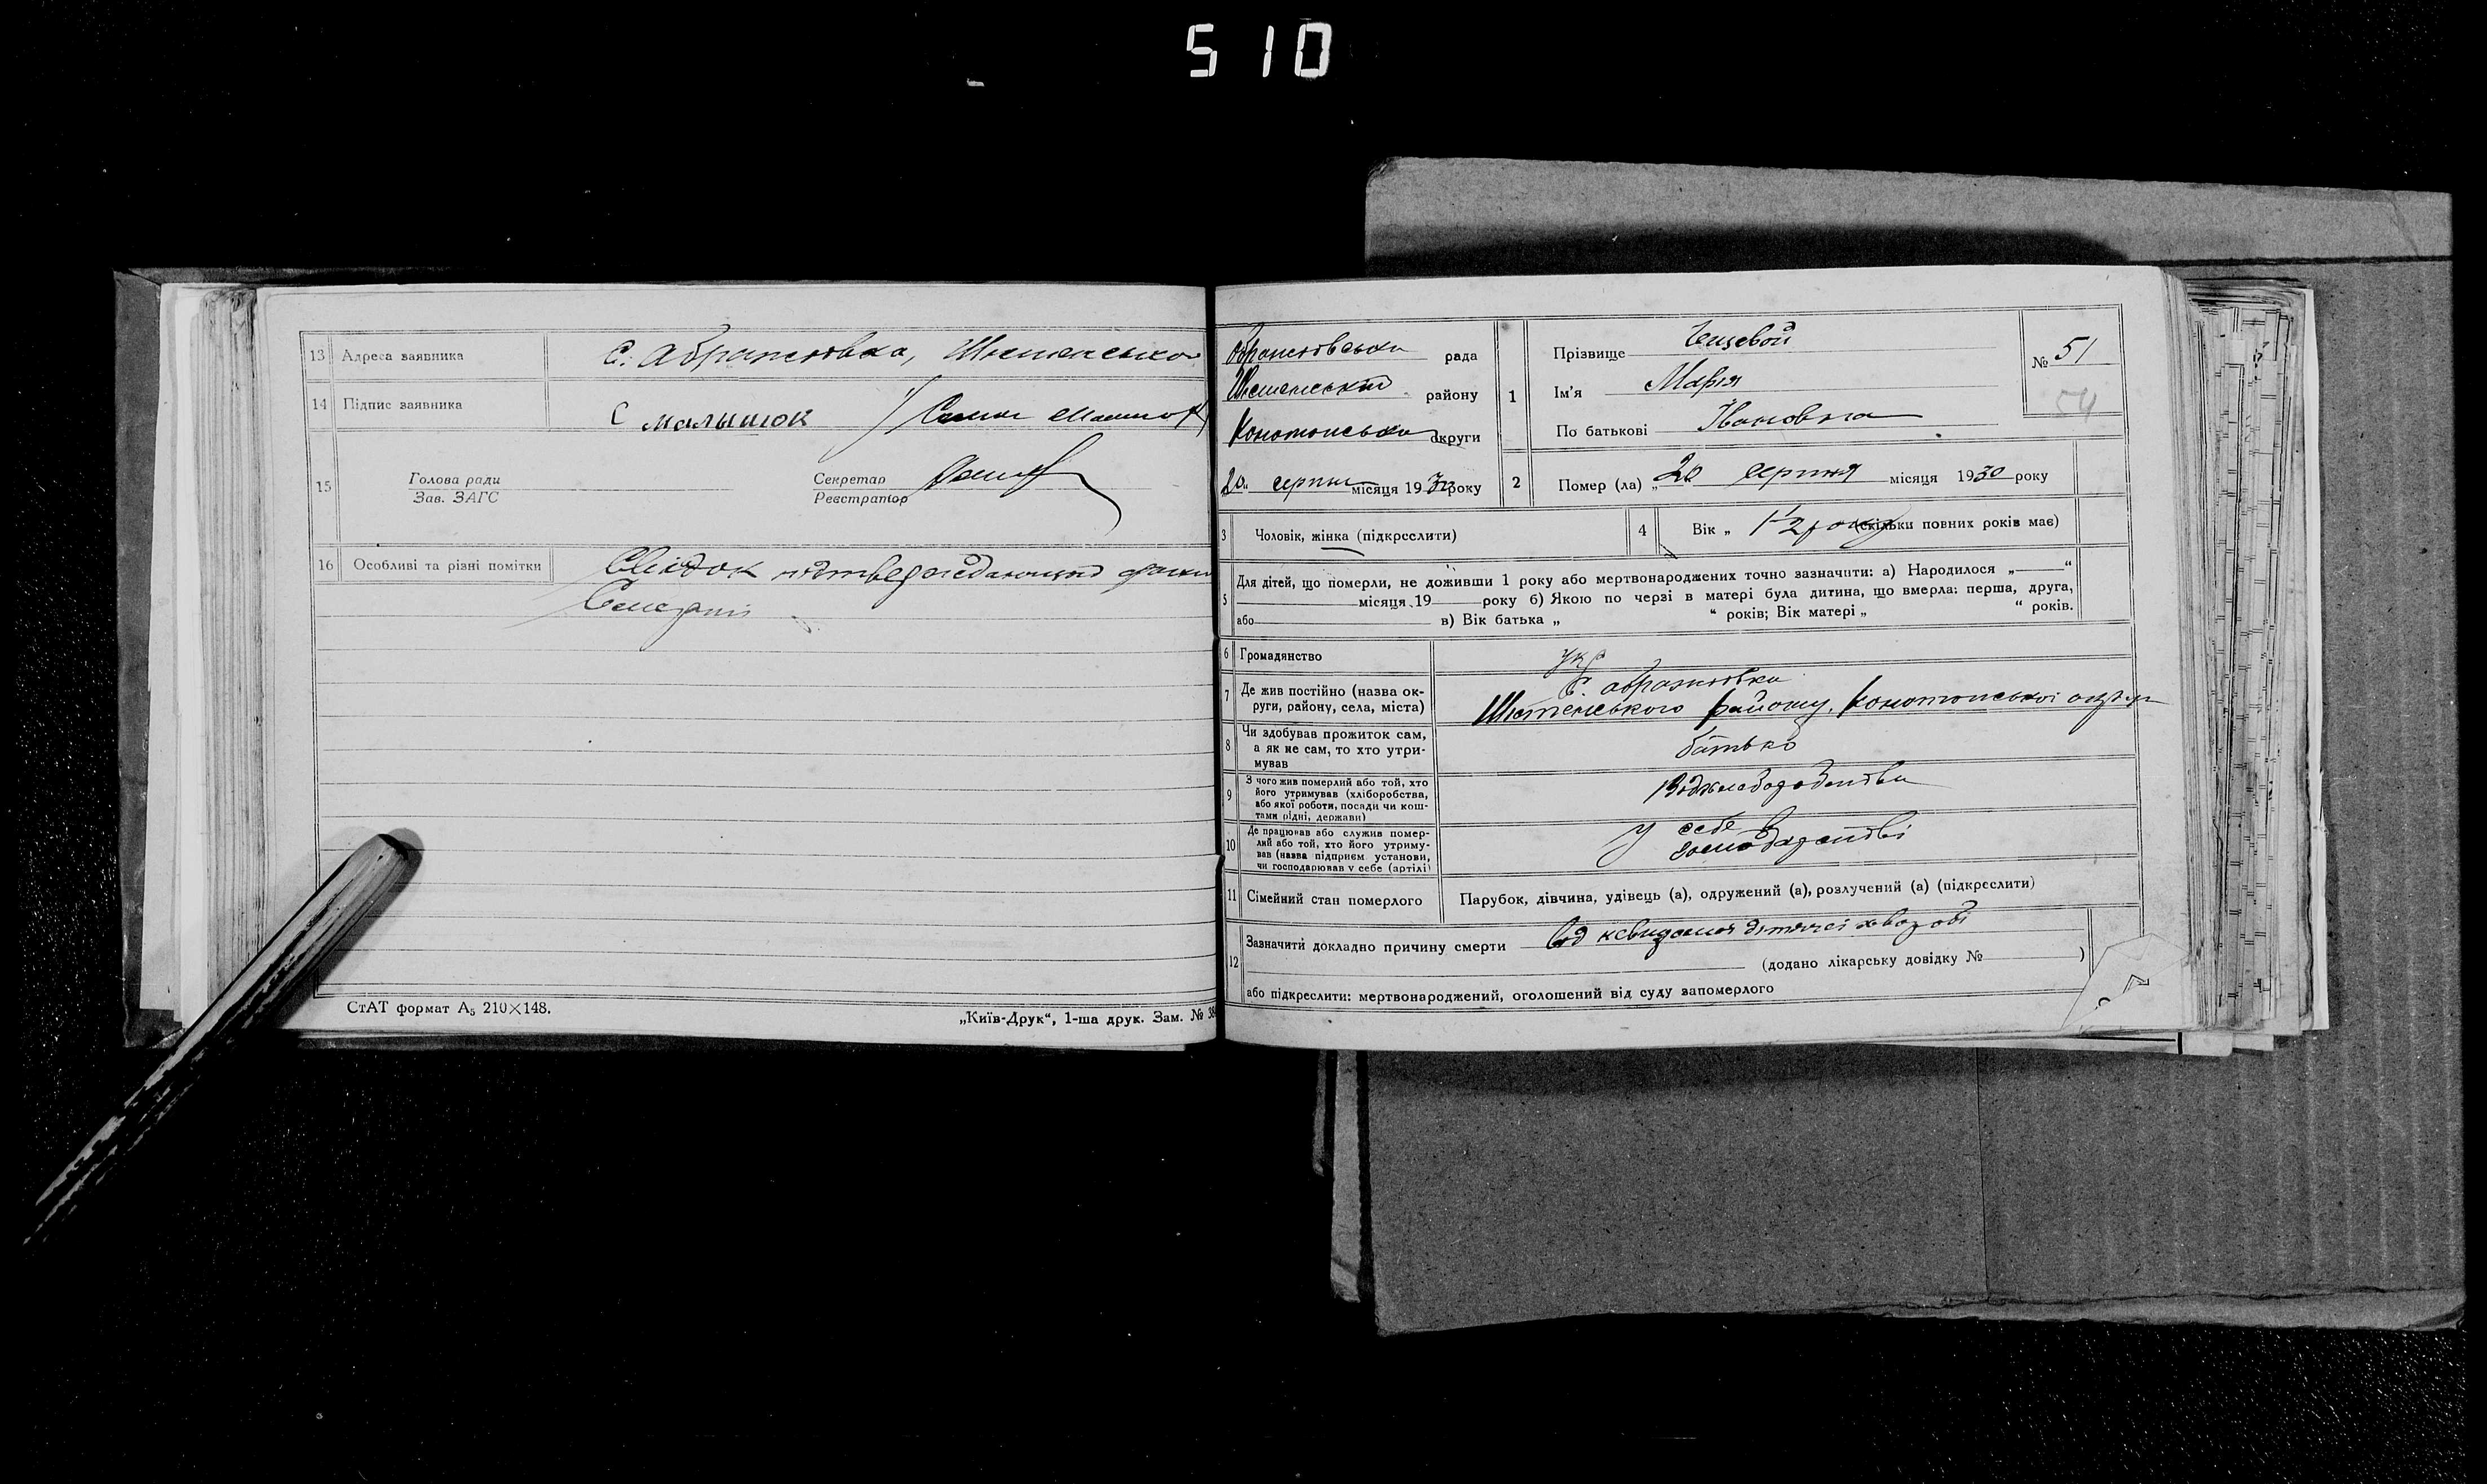 510
13 Адреса заявника С. Абратовка, Шкетенсько
14 Підпис заявника С малышок
15 Голова ради
Зав. ЗАГС
Секретар
Реєстратор
16 Особливі та різні помітки Свідок
СтАТ формат А₅ 210×148.
„Київ-Друк“, 1-ша друк. Зам. №
рада
району
Конотопсько округи
20 серпня місяця 1930 року
1 Прізвище
Ім'я Марія
По батькові Івановна
№ 51
54
2 Помер (ла) „20 серпня місяця 1930 року
3 Чоловік, жінка (підкреслити)
4 Вік „ 1 1/2 року (скільки повних років має)
5 Для дітей, що померли, не доживши 1 року або мертвонароджених точно зазначити: а) Народилося „ “
місяця 19 року б) Якою по черзі в матері була дитина, що вмерла: перша, друга,
або в) Вік батька „ “ років; Вік матері „ “ років.
6 Громадянство укр
7 Де жив постійно (назва ок-
руги, району, села, міста)
С.
району, Конотопської округи
8 Чи здобував прожиток сам,
а як не сам, то хто утри-
мував
батько
9 З чого жив померлий або той, хто
його утримував (хліборобства,
або якої роботи, посади чи кош-
тами рідні, держави)
10 Де працював або служив помер-
лий або той, хто його утриму-
вав (назва підприєм установи,
чи господарював у себе (артілі)
У себе в
господарстві
11 Сімейний стан померлого Парубок, дівчина, удівець (а), одружений (а), розлучений (а) (підкреслити)
12 Зазначити докладно причину смерти Од дитячої хвороби
(додано лікарську довідку № )
або підкреслити: мертвонароджений, оголошений від суду запомерлого